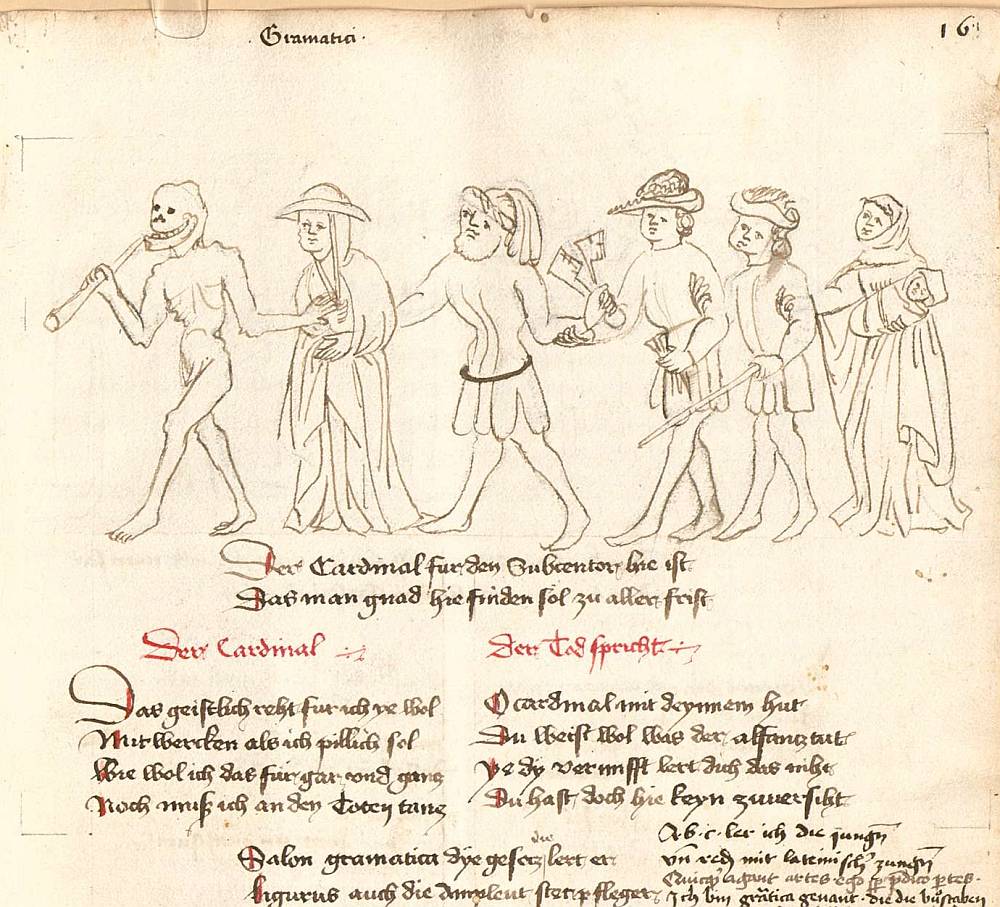 Gramatici·
16
Der Cardinal fur den Subcentor hie ist
Das man gnad hie finden sol zu aller frist
Der Cardinal
Das geistlich reht fur ich ye wol
Mit wercken als ich pillich sol
Wie wol ich das fur gar vnd gancz
Noch muß ich an den Toten tancz
Der Tod spricht
O cardinal mit deynnem hut
Du weist wol was der alfantz tut
dy vernufft lert dich das niht
Du hast doch hie keyn zuuersiht
die
Salon gramatica dye gesecz lert er
ligurus auch die stet pfleger
A·b·c· ler ich die jungen
vn red mit latinisch zungen
Quicquid agant artes ego predico partes·
Ich bin gramatica genant· die die